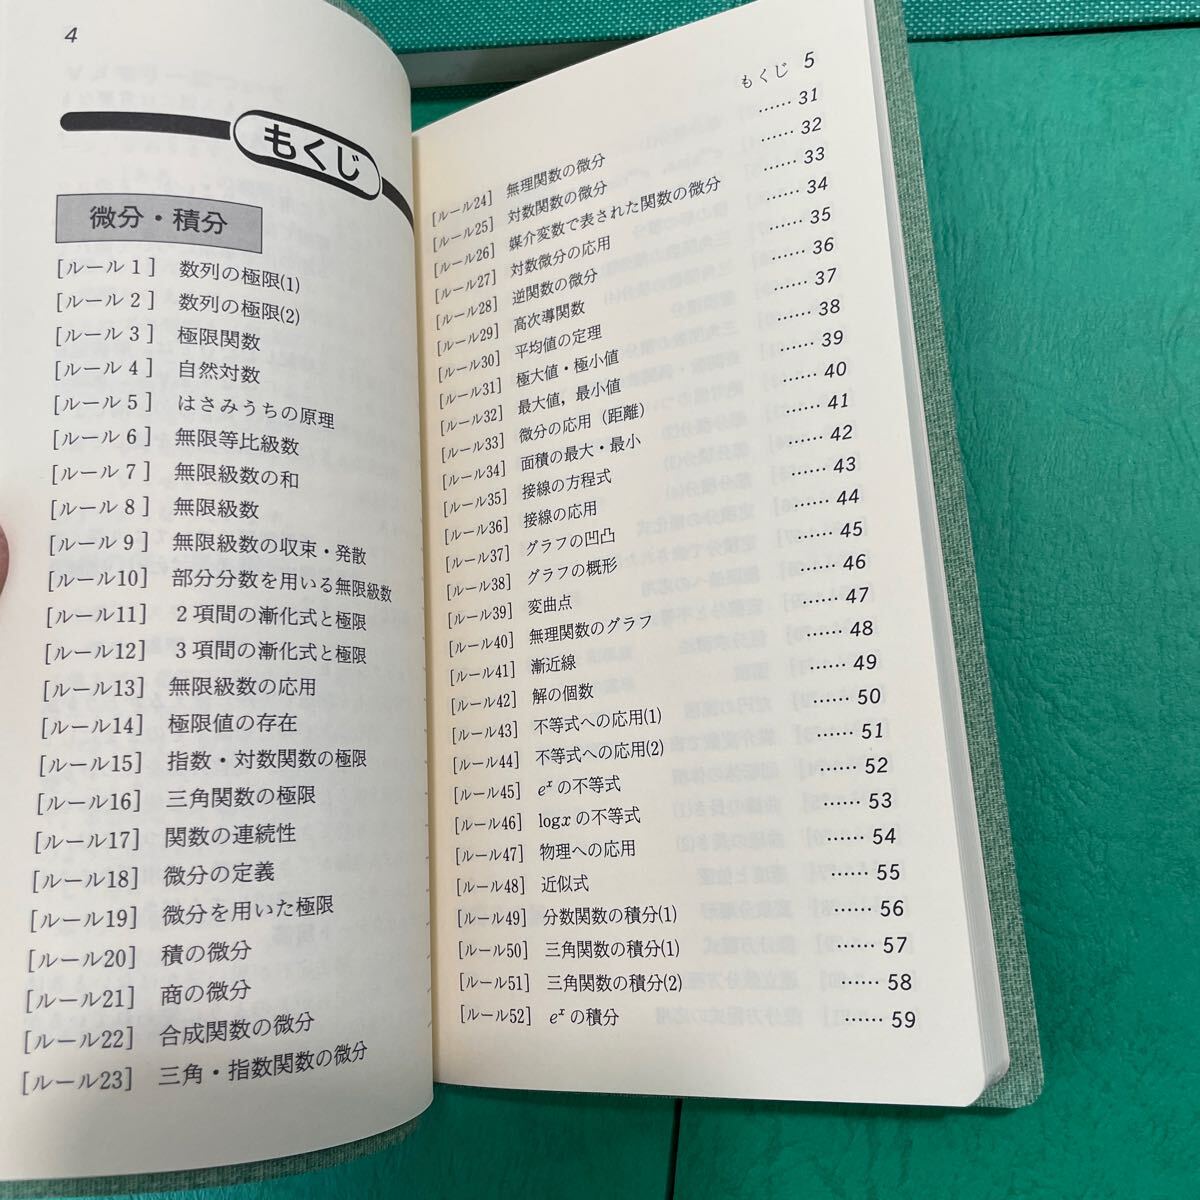 4
もくじ
微分・積分
[ルール1] 数列の極限(1)
[ルール2] 数列の極限(2)
[ルール3] 極限関数
[ルール4] 自然対数
[ルール5] はさみうちの原理
[ルール6] 無限等比級数
[ルール7] 無限級数の和
[ルール8] 無限級数
[ルール9] 無限級数の収束・発散
[ルール10] 部分分数を用いる無限級数
[ルール11] 2項間の漸化式と極限
[ルール12] 3項間の漸化式と極限
[ルール13] 無限級数の応用
[ルール14] 極限値の存在
[ルール15] 指数・対数関数の極限
[ルール16] 三角関数の極限
[ルール17] 関数の連続性
[ルール18] 微分の定義
[ルール19] 微分を用いた極限
[ルール20] 積の微分
[ルール21] 商の微分
[ルール22] 合成関数の微分
[ルール23] 三角・指数関数の微分
もくじ 5
[ルール24] 無理関数の微分 …… 31
[ルール25] 対数関数の微分 …… 32
[ルール26] 媒介変数で表された関数の微分 …… 33
[ルール27] 対数微分の応用 …… 34
[ルール28] 逆関数の微分 …… 35
[ルール29] 高次導関数 …… 36
[ルール30] 平均値の定理 …… 37
[ルール31] 極大値・極小値 …… 38
[ルール32] 最大値，最小値 …… 39
[ルール33] 微分の応用（距離） …… 40
[ルール34] 面積の最大・最小 …… 41
[ルール35] 接線の方程式 …… 42
[ルール36] 接線の応用 …… 43
[ルール37] グラフの凹凸 …… 44
[ルール38] グラフの概形 …… 45
[ルール39] 変曲点 …… 46
[ルール40] 無理関数のグラフ …… 47
[ルール41] 漸近線 …… 48
[ルール42] 解の個数 …… 49
[ルール43] 不等式への応用(1) …… 50
[ルール44] 不等式への応用(2) …… 51
[ルール45] eˣの不等式 …… 52
[ルール46] logxの不等式 …… 53
[ルール47] 物理への応用 …… 54
[ルール48] 近似式 …… 55
[ルール49] 分数関数の積分(1) …… 56
[ルール50] 三角関数の積分(1) …… 57
[ルール51] 三角関数の積分(2) …… 58
[ルール52] eˣの積分 …… 59